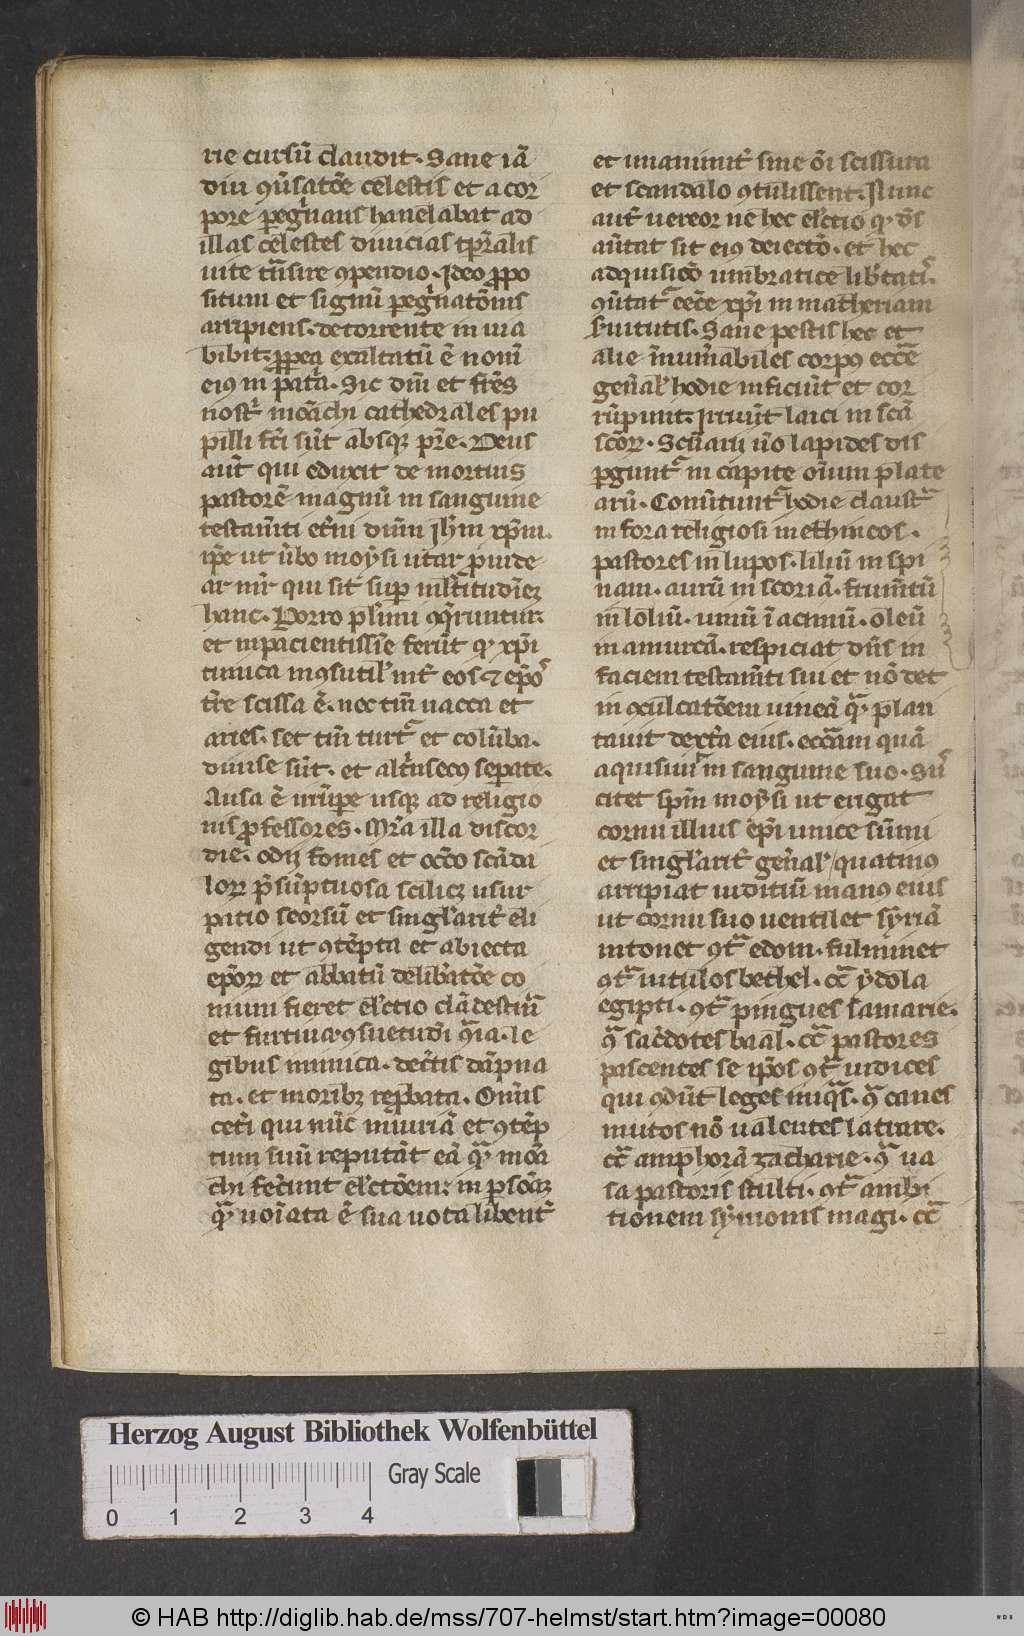 rie cursū claudit. Sane iā
diu ꝯūsatōe celestis et a cor
pore pegͥnans hanelabat ad
illas celestes diuicias tꝑalis
uite tn̄sire ꝯpendio. Ideo ꝓpo
situm et signū pegͥnatōnis
arripiens. de torrente in uia
bibit. ꝓpea exaltatū ē nomē
eius in pat̄a. Sic dn̄i et fr̄es
nostͥ moāchi cathedrales pu
pilli fc̄i sūt absqꝫ pr̄e. Deus
aūt qui eduxit de mortuis
pastorē magnū in sanguine
testam̄ti et̄ni dūm ihm̄ xp̄m.
ip̄e ut ūbo moysi utar ꝓuide
at nr̄ qui sit suꝑ ml̄titudīeꝫ
hanc. Porro pl̄imi ꝯqͥruntur.
et inpacientissīe ferūt qͥ xp̄i
tunica inꝯsutilˈ int̄ eos ⁊ ep̄oꝫ
tr̄e scissa ē. nec tm̄ uacca et
aries. set tm̄ turtˀ et colūba.
diuise sūt. et alt̄insecꝰ seperate.
Ausa ē irrūpe usqꝫ ad religio
nis ꝓfessores. Mr̄a illa discor
die. odij fomes et occō scāda
loꝝ p̄sūptuosa scilicꝫ usur
patio seorsū et singl̄arit̄ eli
gendi ut ꝯtēpta et abiecta
ep̄oꝝ et abbatū delib̄atōe co
muni fieret el̄ctio clādestīa
et furtiua. ꝯsuetudī qͥa. le
gibus inimica. dec̄tis dāpna
ta. et moribꝫ rep̄bata. Om̄is
cet̄i qui nūc iniuriā et ꝯtēp
tum suū reputāt eā qͣ moā
chi fec̄unt el̄ctōem. in ꝑsōaꝫ
qͣ uoīata ē sua uota libentͥ
et unanimit̄ sine oī scissura
et scandalo ꝯtulissent. Nunc
aut̄ uereor ne hec el̄ctio qͥ dr̄
aūtat sit eius deiectō. et hec
adquisicō umbratice lib̄tatͥ.
ꝯūtatͬ ecc̄e xp̄i in matheriam
s̄uitutis. Sane pestis hec et
alie īnum̄abiles corpꝰ ecc̄e
gen̄alˈ hodie inficiūt et cor
rūpunt. Irruūt laici in scā
scōꝝ. Sc̄uarij ūo lapides dis
ꝑguntͬ in capite oīum plate
arū. Conūtuntͬ hodie claustͬ
in fora religiosi in ethnicos.
pastores in lupos. liliū in spi
nam. aurū in scoriā. frum̄tū
in loliū. uinū ī acinū. oleū
in amurcā. respiciat dn̄s in
faciem testam̄ti sui et nō det
in ꝯculcatōem uineā qͣ plan
tauit dext̄a eius. ecc̄am quā
aquisiuiͭ in sanguine suo. Suͥ
citet spm̄ moysi ut erigat
cornu illius ep̄i unice sūmi
et singl̄arit̄ gen̄alˈ/quatinꝰ
arripiat iuditiū manꝰ eius
ut cornu suo uentilet syriā
intonet ꝯtͣ edom. fulminet
ꝯtͣ uitulos bethel. cͣ ydola
egipti. ꝯtͣ pingues samarie.
ꝯͣ sac̄dotes baal. cͣ pastores
pascentes se ip̄os ꝯtͣ iudices
qui ꝯdūt leges iniqͣs. ꝯͣ canes
mutos nō ualentes latrare.
cͣ amphorā zacharie. ꝯͣ ua
sa pastoris stulti. ꝯtͣ ambi
tionem symonis magi. cͣ
Herzog August Bibliothek Wolfenbüttel
Gray Scale
0 1 2 3 4
© HAB http://diglib.hab.de/mss/707-helmst/start.htm?image=00080